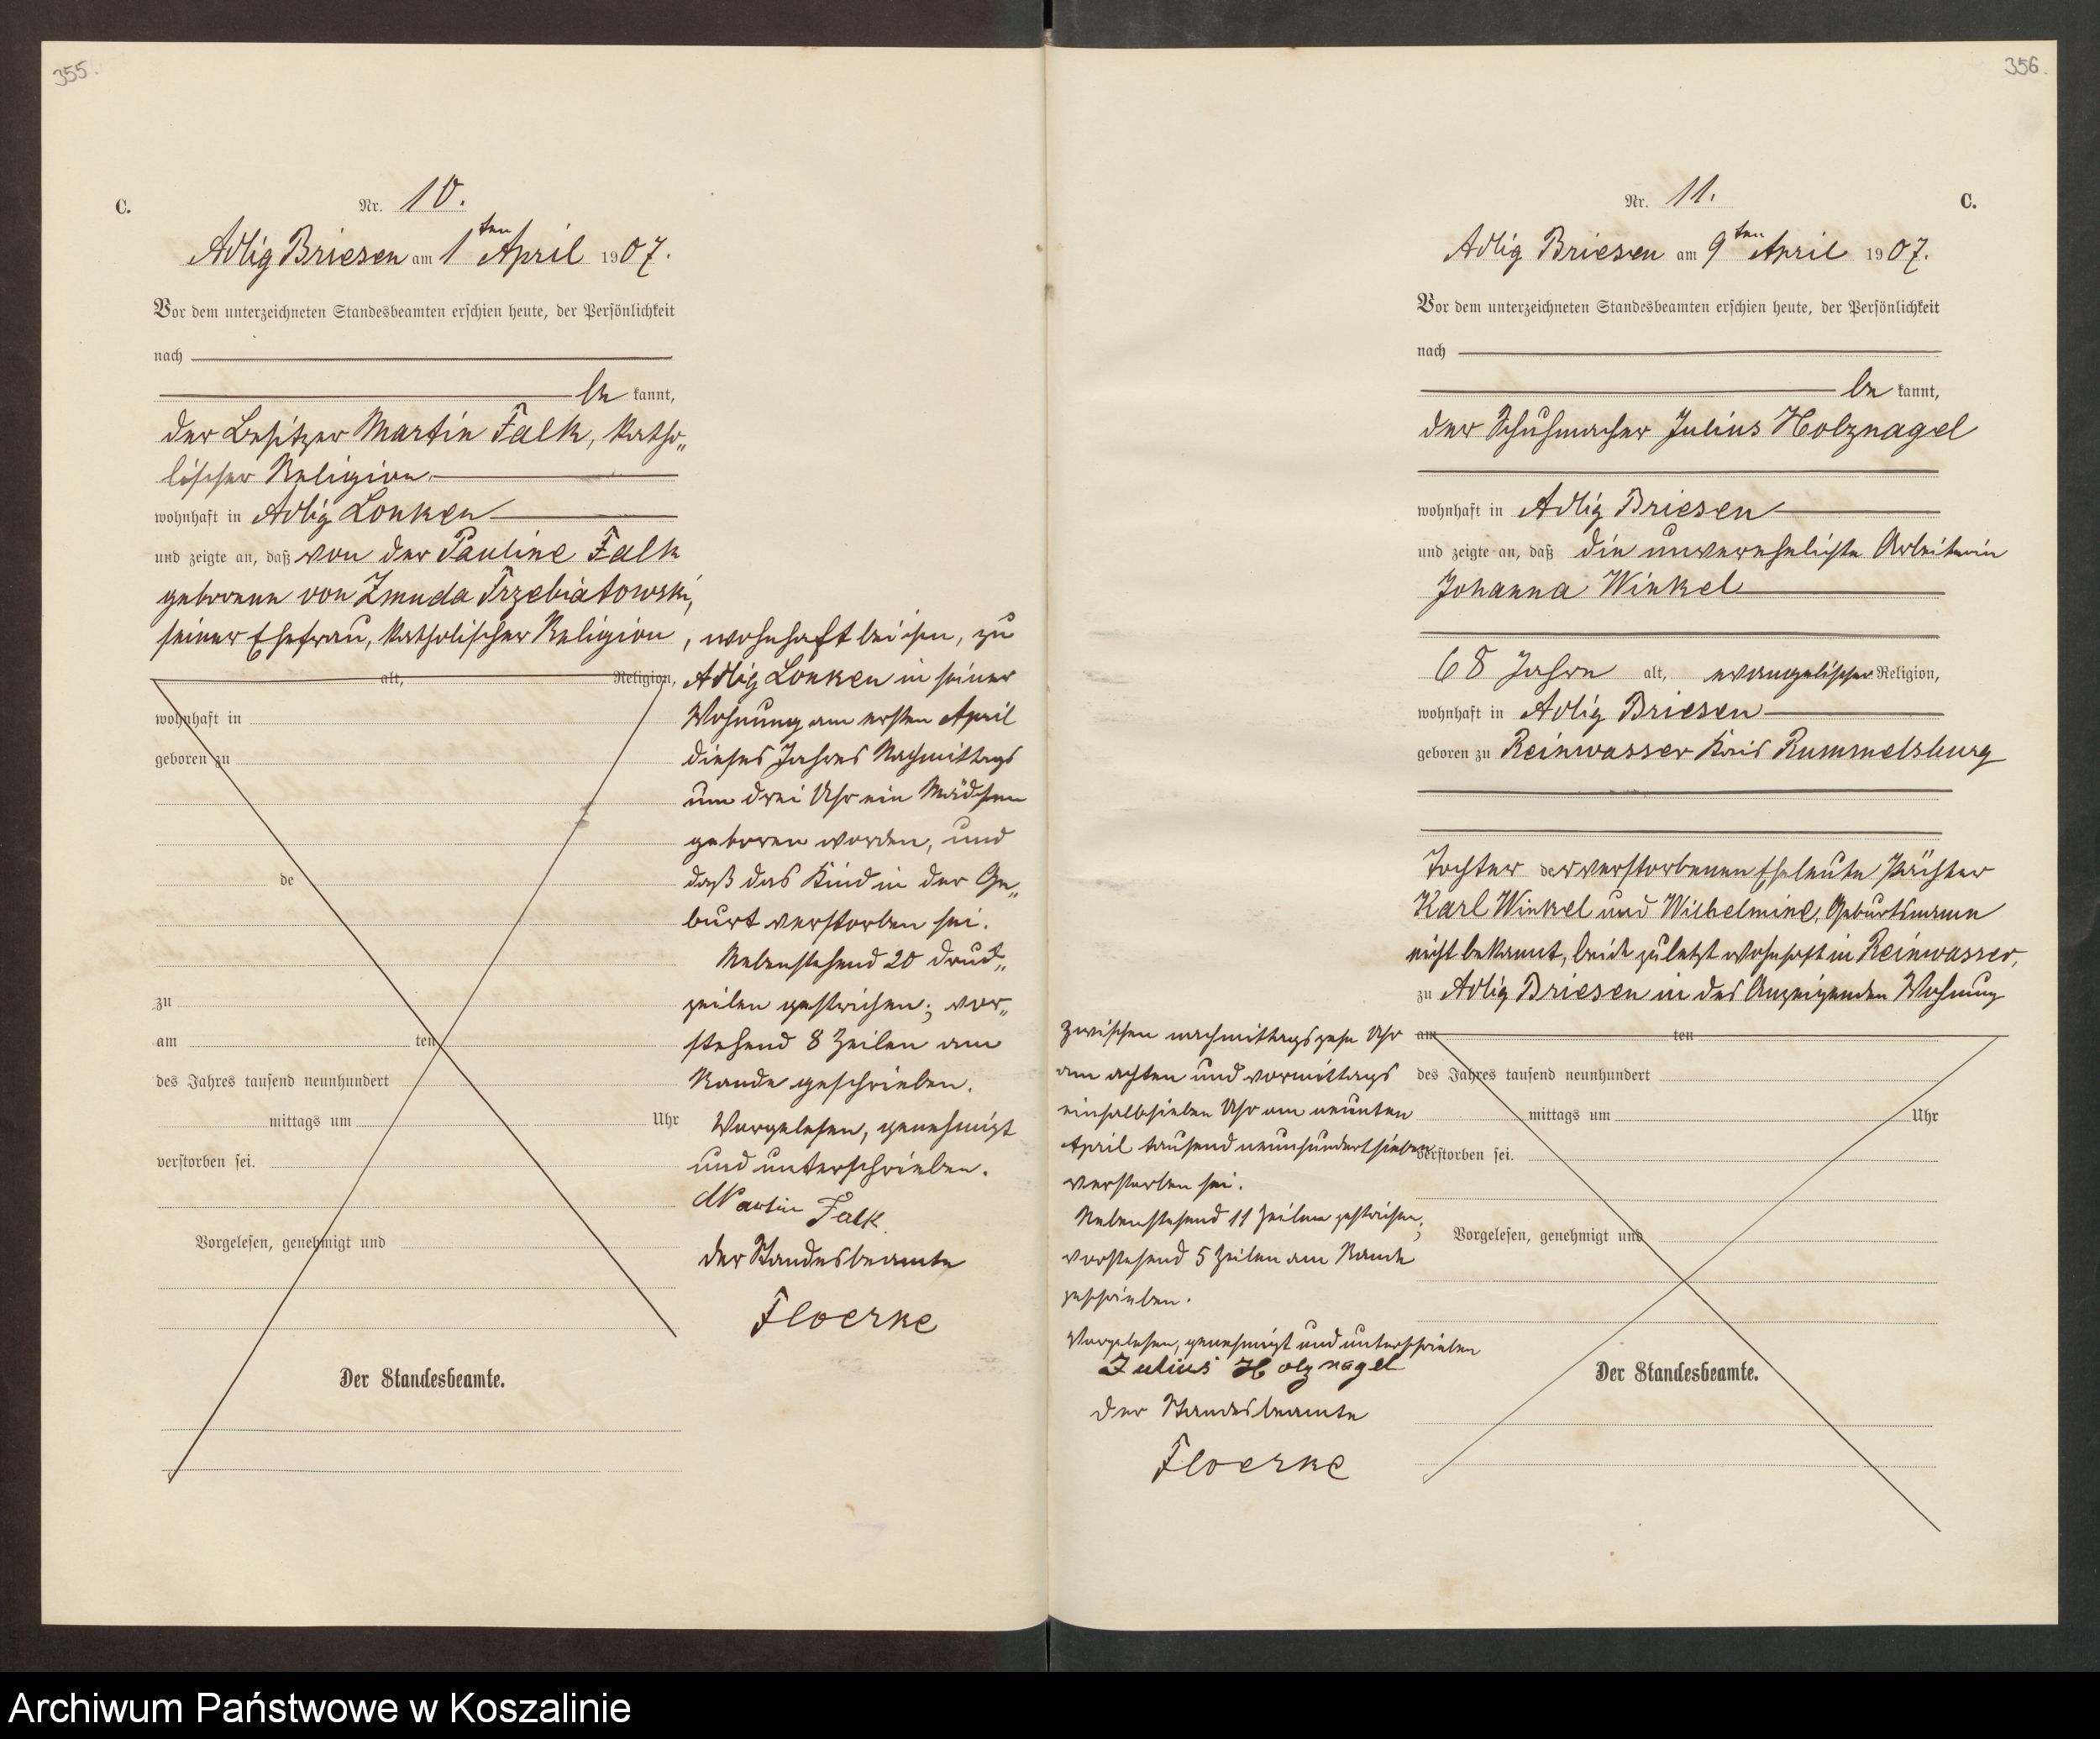 355.
C.
Nr. 10.
Adlig Briesen am 1ten April 1907.
Vor dem unterzeichneten Standesbeamten erschien heute, der Persönlichkeit
nach
be kannt,
der Besitzer Martin Falk, katho„
lischer Religion
wohnhaft in Adlig Lonken
und zeigte an, daß von der Pauline Falk
geborene von Zmuda Trzebiatowski,
seiner Ehefrau, katholischer Religion
alt, Religion,
wohnhaft in
geboren zu
de
zu
am ten
des Jahres tausend neunhundert
mittags um Uhr
verstorben sei.
Vorgelesen, genehmigt und
Der Standesbeamte.
, wohnhaft bei ihm, zu
Adlig Lonken in seiner
Wohnung am ersten April
dieses Jahres Nachmittags
um drei Uhr ein Mädchen
geboren worden, und
daß das Kind in der Ge„
burt verstorben sei.
Nebenstehend 20 Druck„
zeilen gestrichen; vor„
stehend 8 Zeilen am
Rande geschrieben.
Vorgelesen, genehmigt
und unterschrieben.
Martin Falk
Der Standesbeamte
Floerke
356.
C.
Nr. 11.
Adlig Briesen am 9ten April 1907.
Vor dem unterzeichneten Standesbeamten erschien heute, der Persönlichkeit
nach
be kannt,
der Schuhmacher Julius Holznagel
wohnhaft in Adlig Briesen
und zeigte an, daß die unverehelichte Arbeiterin
Johanna Winkel
68 Jahre alt, evangelischer Religion,
wohnhaft in Adlig Briesen
geboren zu Reinwasser Kreis Rummelsburg
Tochter der verstorbenen Eheleute Pächter
Karl Winkel und Wilhelmine, Geburtsname
nicht bekannt, beide zuletzt wohnhaft in Reinwasser,
zu Adlig Briesen in des Anzeigenden Wohnung
am ten
des Jahres tausend neunhundert
mittags um Uhr
verstorben sei.
Vorgelesen, genehmigt und
Der Standesbeamte.
zwischen nachmittags zehn Uhr
am achten und vormittags
einhalbsieben Uhr am neunten
April tausend neunhundert sieben
verstorben sei.
Nebenstehend 11 Zeilen gestrichen;
vorstehend 5 Zeilen am Rande
geschrieben.
Vorgelesen, genehmigt und unterschrieben
Julius Holznagel
Der Standesbeamte
Floerke
Archiwum Państwowe w Koszalinie